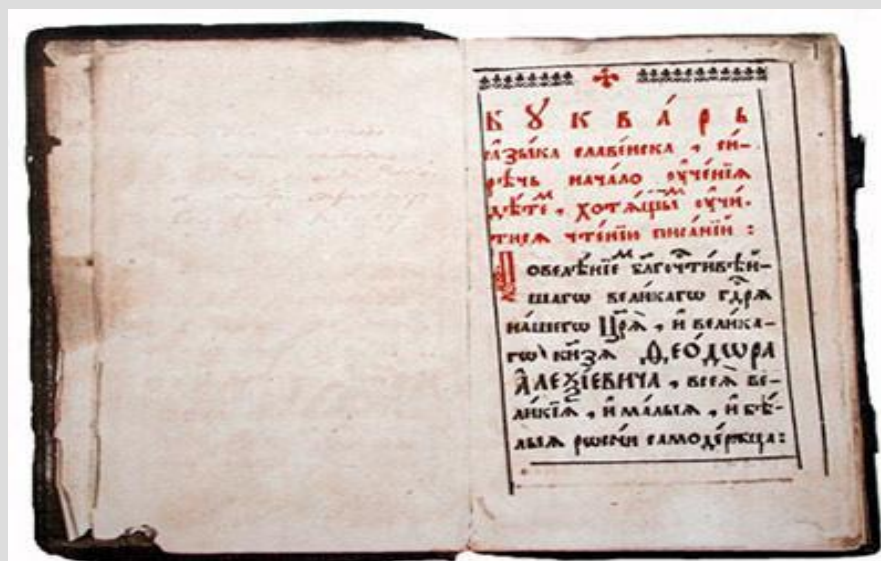 Бꙋква́рь
ꙗ҆зы́ка славе́нска, си́-
рѣчь нача́ло ᲂу҆че́нїѧ
дѣ́теⷨ, хотѧ́щыⷨ ᲂу҆чи́-
тисѧ чте́нїю писа́нїй :
Повелѣ́нїеⷨ бл҃гочⷭ҇ти́вѣй-
шагѡ вели́кагѡ гдⷭ҇рѧ
на́шегѡ Цр҃ѧ̀, и҆ вели́ка-
гѡ кн҃зѧ Ѳео́дѡра
А҆леѯі́евича, всеѧ̀ ве-
ли́кїѧ, и҆ ма́лыѧ, и҆ бѣ́-
лыѧ рѡссі́и самоде́ржца :